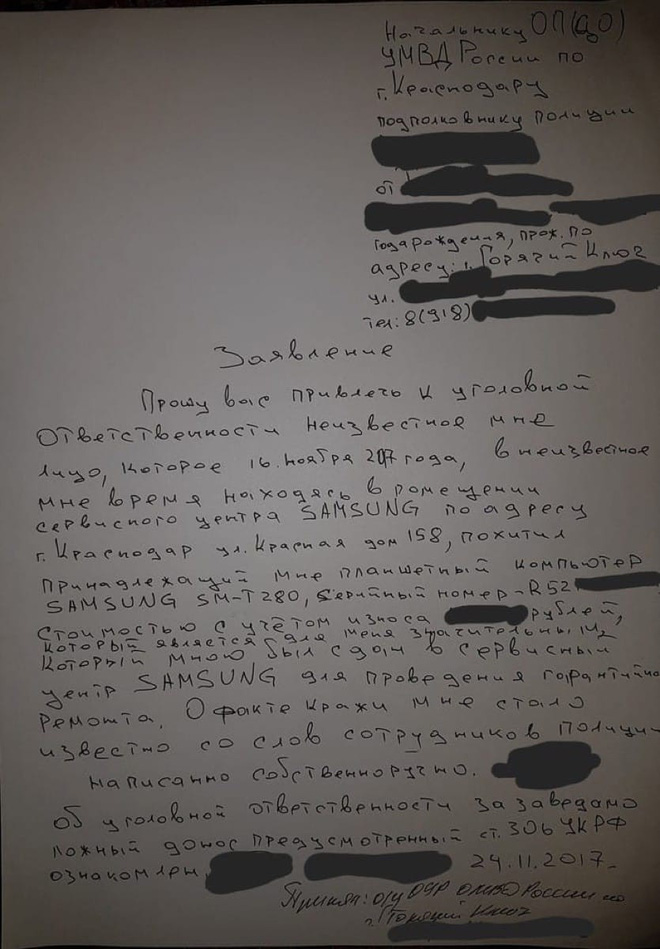 Начальнику ОП(ЦО)
УМВД России по
г. Краснодару
подполковнику полиции
от
года рождения, прож. по
адресу: г. Горячий Ключ
ул.
тел: 8(918)
Заявление
Прошу вас привлечь к уголовной
ответственности неизвестное мне
лицо, которое 16 ноября 2017 года, в неизвестное
мне время находясь в помещении
сервисного центра SAMSUNG по адресу
г. Краснодар ул. Красная дом 158, похитил
принадлежащий мне планшетный компьютер
SAMSUNG SM-T280, серийный номер-R52
стоимостью с учётом износа рублей,
который является для меня значительным,
который мною был сдан в сервисный
центр SAMSUNG для проведения гарантийно
ремонта. О факте кражи мне стало
известно со слов сотрудников полиции
написанно собственноручно.
об уголовной ответственности за заведамо
ложный донос предусмотренный ст. 306 УКРФ
ознакомлен, 24.11.2017-
Принял: о/у ОУР ОМВД России по
г. Горячий Ключ